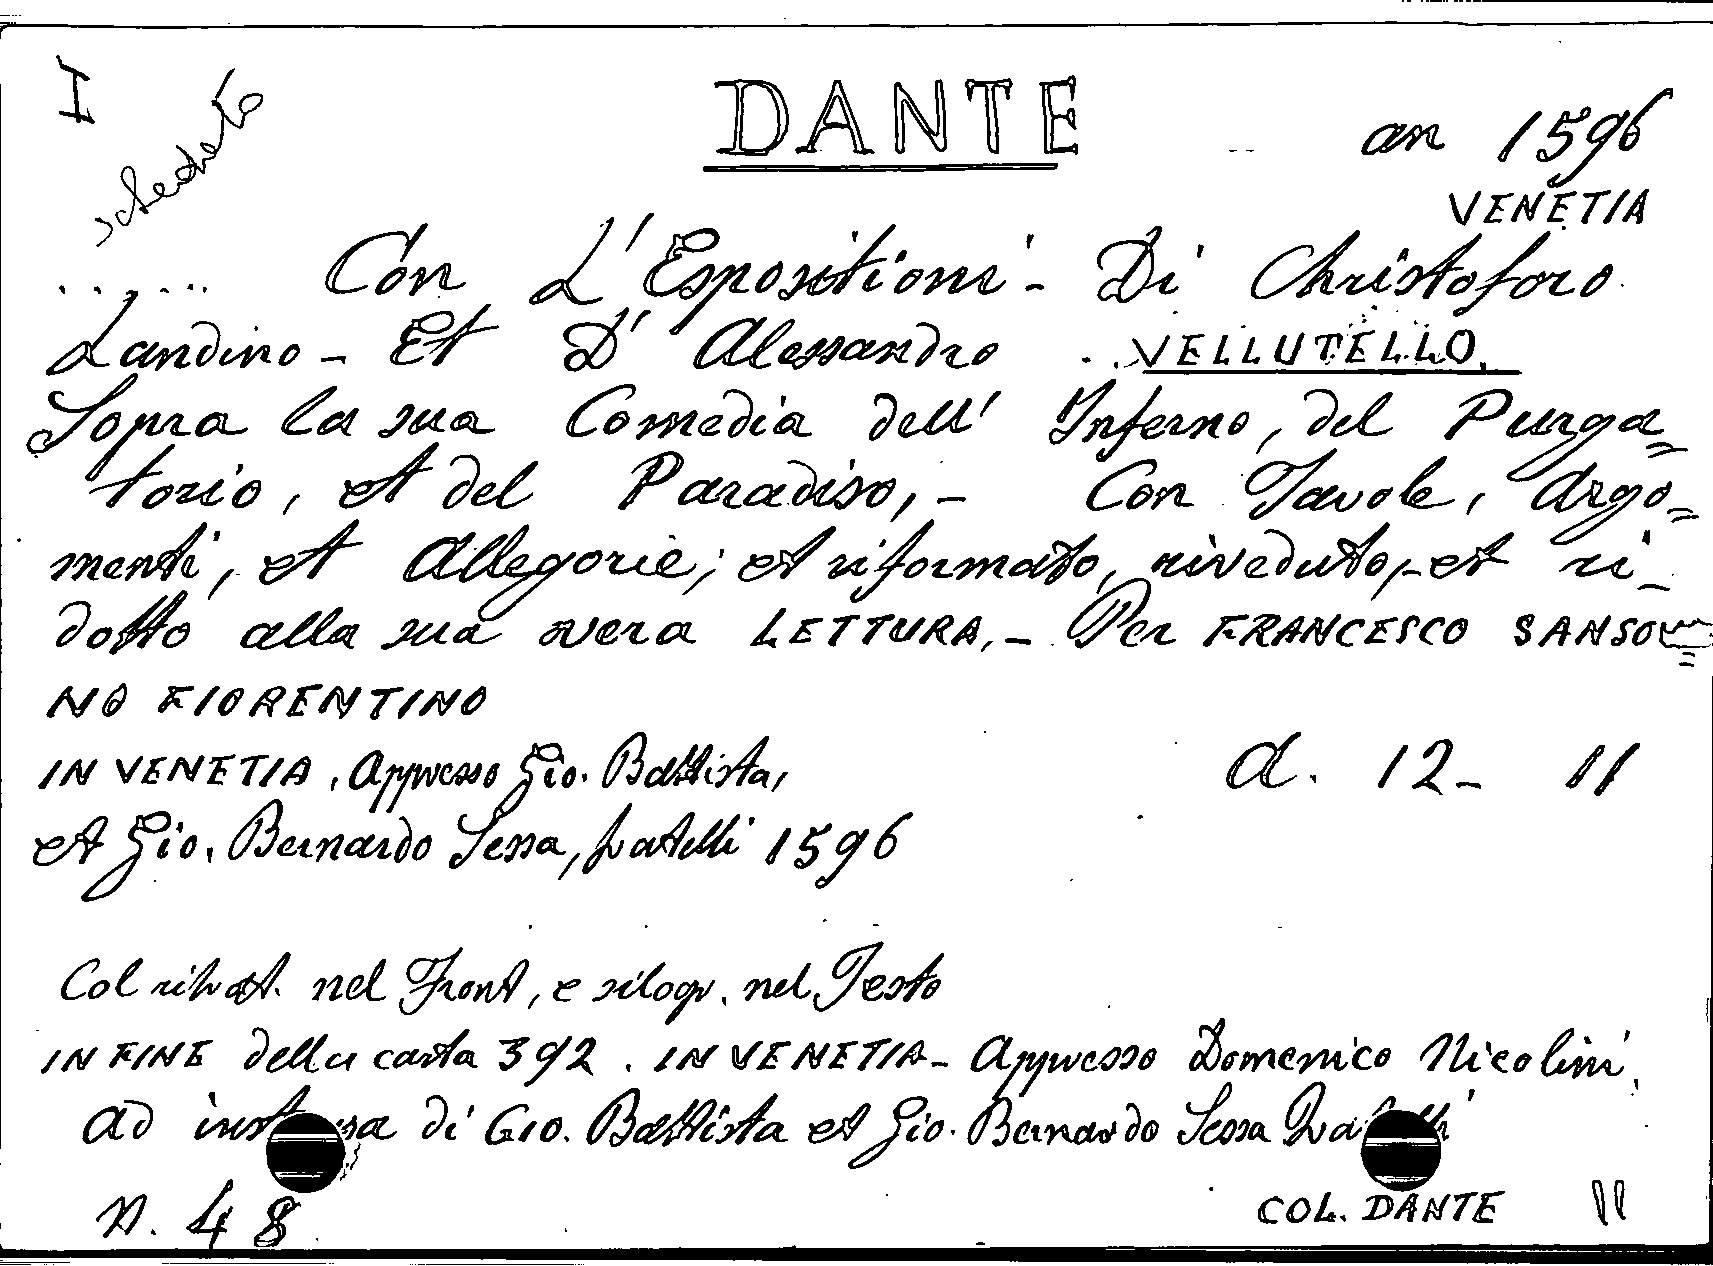 I
schedato
DANTE
an 1596
VENETIA
...... Con L'Espositioni - Di Christoforo
Landino - Et D'Alessandro VELLUTELLO.
Sopra la sua Comedia dell'Inferno, del Purga=
torio, et del Paradiso, - Con Tavole, Argo=
menti, et Allegorie; et riformato, riveduto, - et ri-
dotto alla sua vera LETTURA, - Per FRANCESCO SANSO=
NO FIORENTINO
IN VENETIA, Appresso Gio. Battista,
a. 12 - 11
et Gio. Bernardo Sessa, fratelli 1596
Col ritrat. nel Front, e silogr. nel Testo
IN FINE della carta 392. IN VENETIA - Appresso Domenico Nicolini,
ad di Gio. Battista et Gio. Bernardo Sessa
N. 48
COL. DANTE 11